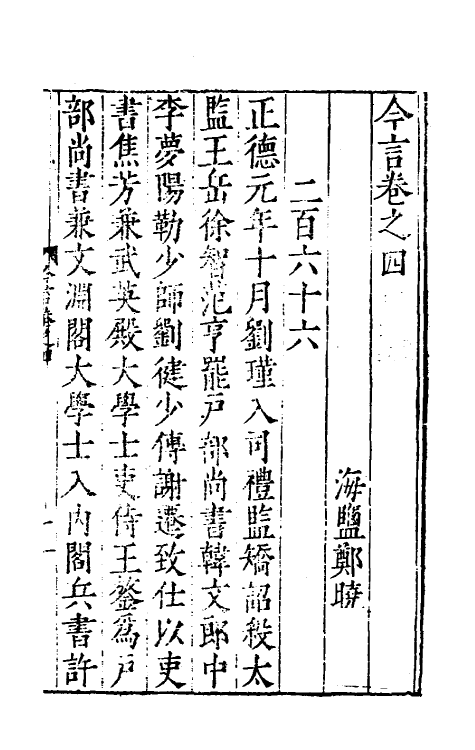 今言卷之四
海鹽鄭曉
二百六十六
正德元年十月劉瑾入司禮監矯詔殺太
監王岳徐智范亨罷戶部尚書韓文郎中
李夢陽勒少師劉健少傅謝遷致仕以吏
書焦芳兼武英殿大學士吏侍王鏊爲戶
部尚書兼文淵閣大學士入內閣兵書許